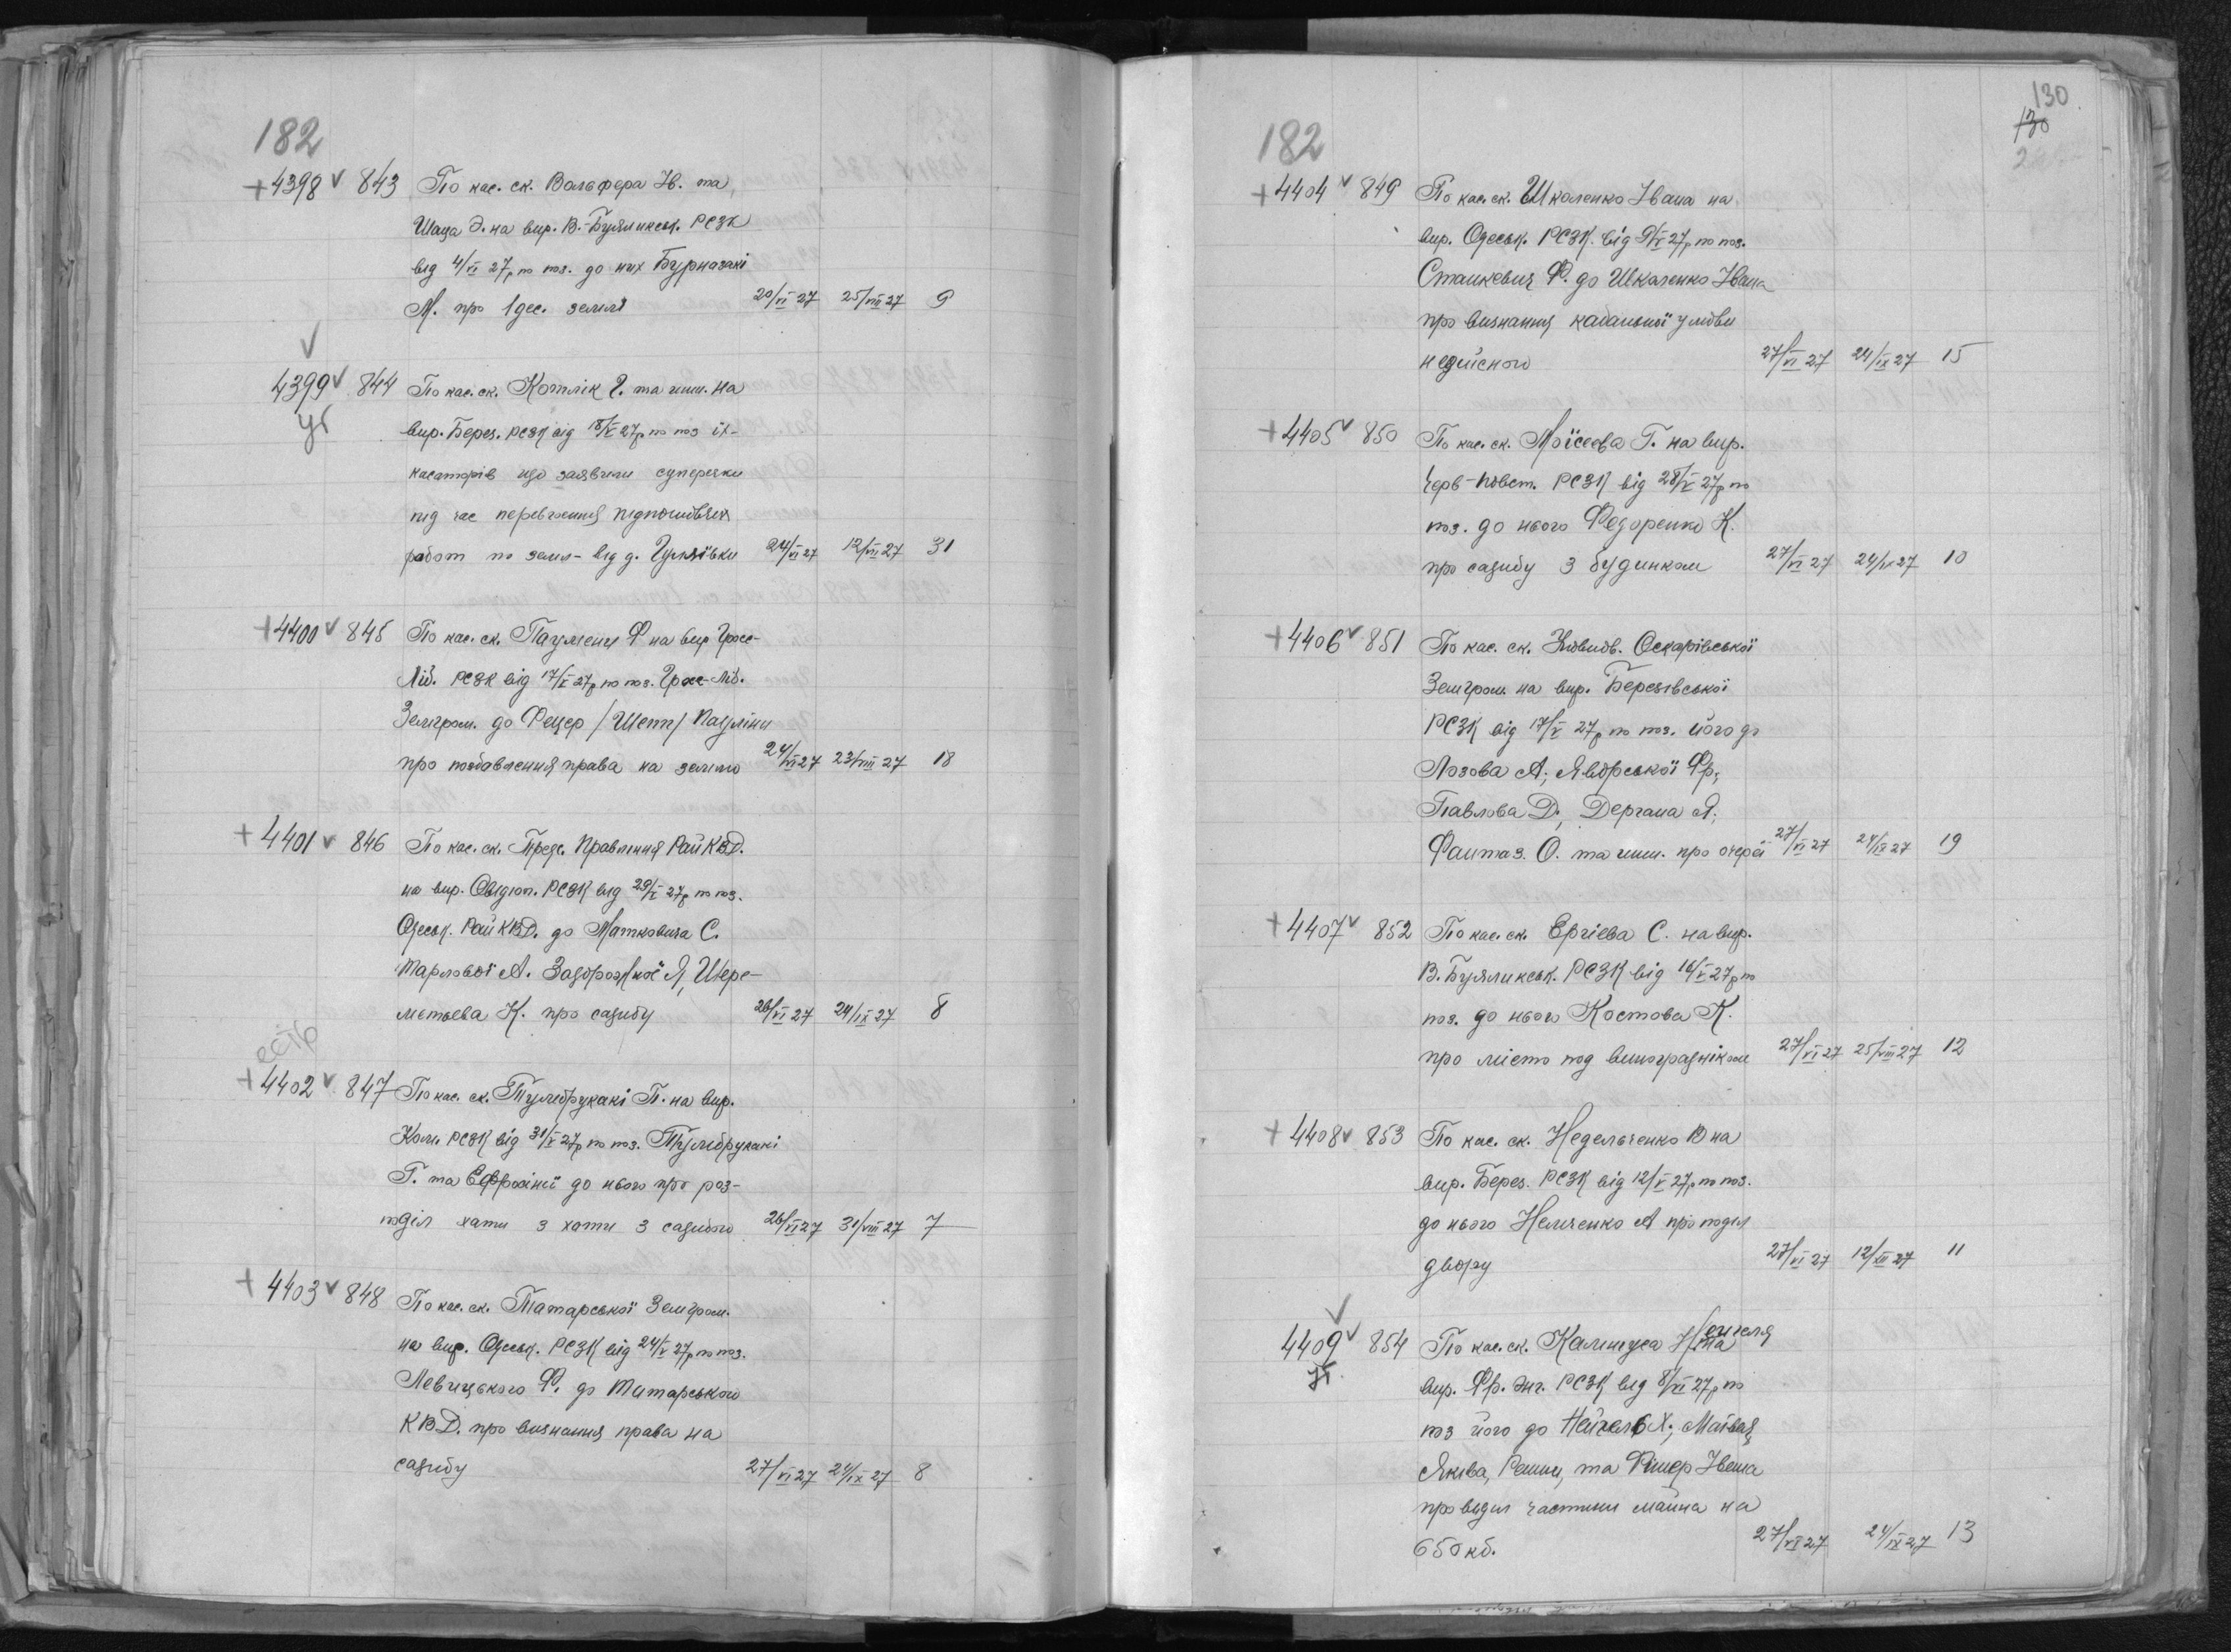 182
+4398 v 843 По кас. ск. Вольфера Ів. та
Шаца Э. на вир. В.-Буяликськ. РСЗК
від 4/VI 27р по поз. до них Бурназакі
М. про 1 дес. землі 20/VI 27 25/VIII 27 9
v
4399 v 844 По кас. ск. Котлік Г. та инш. на
вир. Берез. РСЗК від 18/V 27р по поз їх-
касаторів що заявили суперечки
під час переведення підготовчих
работ по земл- від д. Гуляївки 24/VI 27 12/VIII 27 31
+4400 v 845 По кас. ск. Паулени Ф на вир Грос-
Ліб. РСЗК від 17/V 27р по поз. Грос-Ліб.
Земгром. до Фецер /Шетт/ Пауліни
про позбавлення права на землю 24/VI 27 23/VIII 27 18
+4401 v 846 По кас. ск. Пред. Правління РайКВД.
на вир. Овідіоп. РСЗК від 29/V 27р по поз.
Одеськ. РайКВД. до Матковича С.
Марлової А. Задорожної Я, Шере-
метьева К. про садибу 26/VI 27 24/IX 27 8
есть
+4402 v 847 По кас. ск. Тумбрукакі П. на вир.
Ком. РСЗК від 31/V 27р по поз. Тумбрукакі
Г. та Ефросінії до нього про роз-
поділ хати з хати з садибою 26/VI 27 31/VIII 27 7
+4403 v 848 По кас. ск. Татарської Земгром.
на вир. Одеськ. РСЗК від 24/V 27р по поз.
Левицького Ф. до Татарського
КВД. про визнання права на
садибу 27/VI 27 24/IX 27 8
130
130
182
+4404 v 849 По кас. ск. Школенко Івана на
вир. Одеськ. РСЗК від 9/V 27р по поз.
Станкевич Ф. до Шкаленко Івана
про визнання кабальної умови
недійсною 27/VI 27 24/IX 27 15
+4405 v 850 По кас. ск. Моїсеєва Г. на вир.
Черв-Повст. РСЗК від 28/V 27р по
поз. до нього Федоренко К.
про садибу з будинком 27/VI 27 24/IX 27 10
+4406 v 851 По кас. ск. Оскарівської
Земгром. на вир. Березівської
РСЗК від 17/V 27р по поз. його до
Лозова А; Яворської Фр,
Павлова Д., Дергача Я;
Фантаз. О. та инш. про 27/VI 27 24/IX 27 19
+4407 v 852 По кас. ск. Ергієва С. на вир.
В. Буяликськ. РСЗК від 16/V 27р по
поз. до нього Костова К.
про місто под виноградніком 27/VI 27 25/VIII 27 12
+4408 v 853 По кас. ск. Недельченко В на
вир. Берез. РСЗК від 12/V 27р по поз.
до нього Немченко А про поділ
двору 27/VI 27 12/XII 27 11
v
4409 v 854 По кас. ск. Калиндса на
вир. Фр. Энг. РСЗК від 8/VI 27р по
поз його до Нейгель Х; Матвея,
Якива, Реини, та Фішер Івана
про выдил частини майна на
650 кб. 27/VI 27 24/IX 27 13